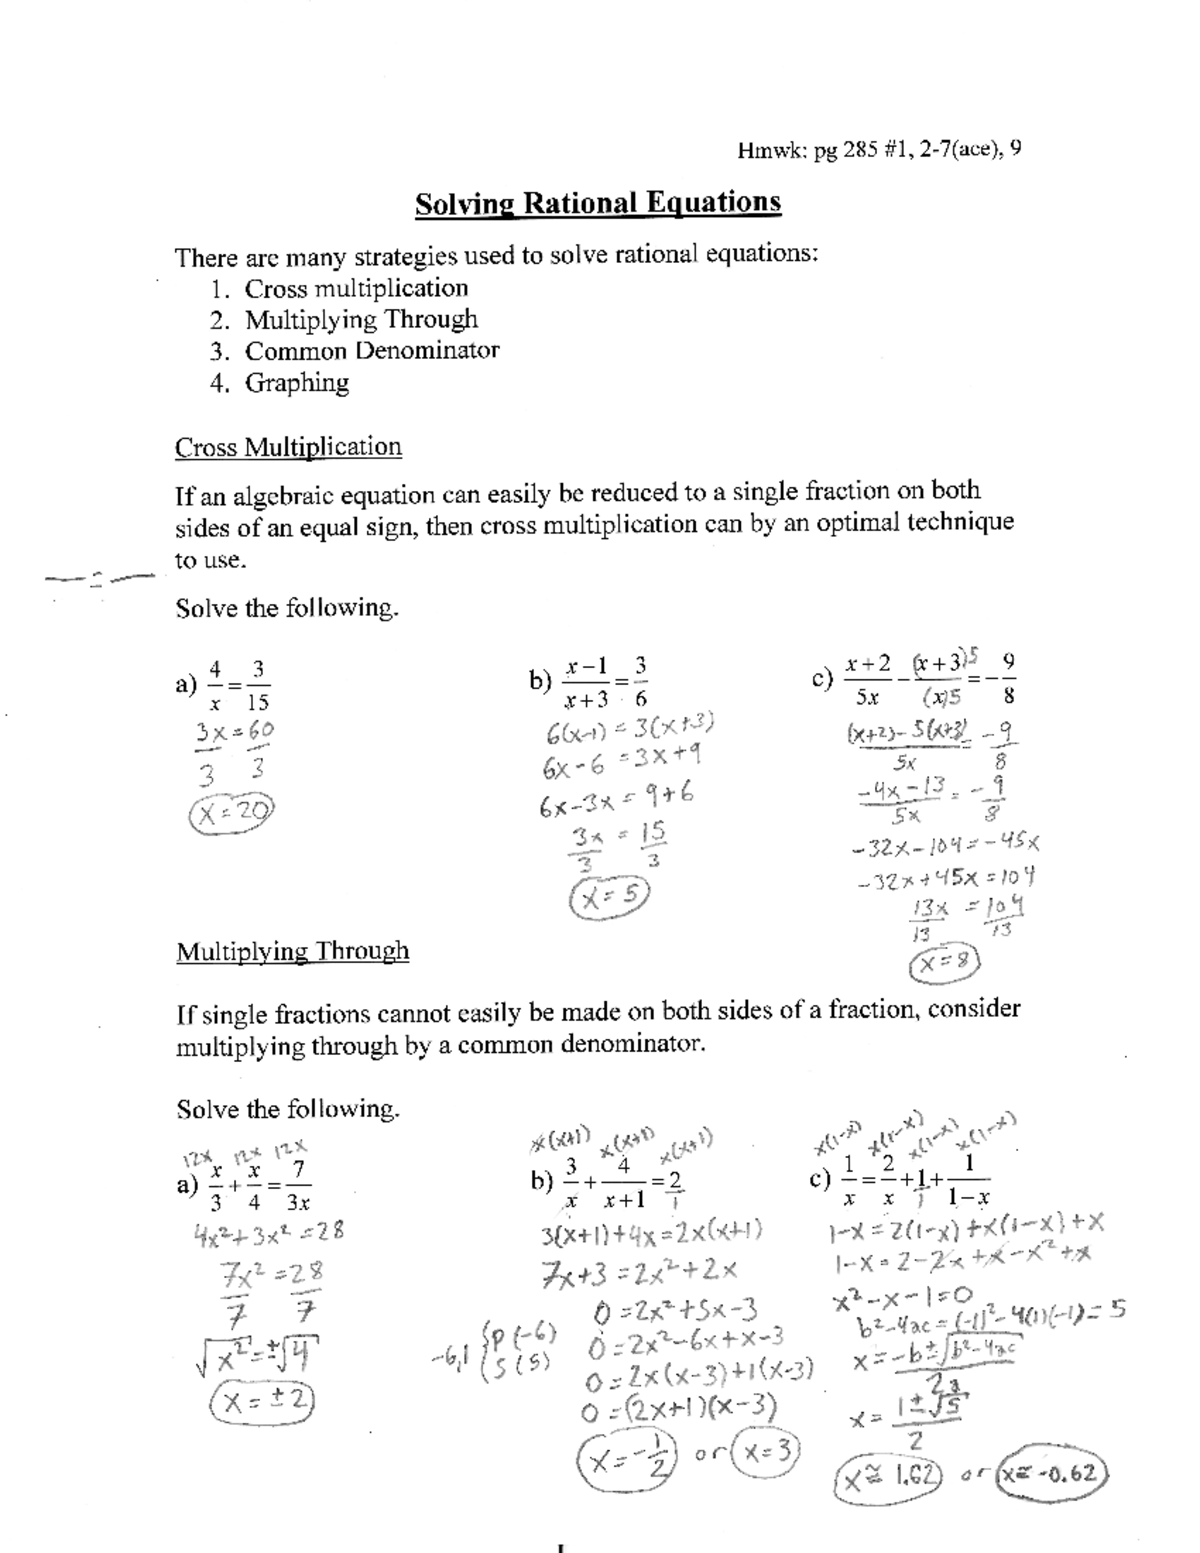 Hmwk: pg 285 #1, 2-7(ace), 9
Solving Rational Equations
There are many strategies used to solve rational equations:
1. Cross multiplication
2. Multiplying Through
3. Common Denominator
4. Graphing
Cross Multiplication
If an algebraic equation can easily be reduced to a single fraction on both
sides of an equal sign, then cross multiplication can by an optimal technique
to use.
— = —
Solve the following.
a) 4/x = 3/15
3x = 60
3 3
x = 20
b) (x-1)/(x+3) = 3/6
6(x-1) = 3(x+3)
6x-6 = 3x+9
6x-3x = 9+6
3x/3 = 15/3
x = 5
c) (x+2)/5x - (x+3)5/(x)5 = -9/8
((x+2)-5(x+3))/5x = -9/8
(-4x-13)/5x = -9/8
-32x-104 = -45x
-32x+45x = 104
13x/13 = 104/13
x = 8
Multiplying Through
If single fractions cannot easily be made on both sides of a fraction, consider
multiplying through by a common denominator.
Solve the following.
12x 12x 12x
a) x/3 + x/4 = 7/3x
4x²+3x² = 28
7x²/7 = 28/7
√x² = ±√4
x = ±2
x(x+1) x(x+1) x(x+1)
b) 3/x + 4/(x+1) = 2/1
3(x+1)+4x = 2x(x+1)
7x+3 = 2x²+2x
0 = 2x²+5x-3
-6,1 { P (-6) S (5)
0 = 2x²-6x+x-3
0 = 2x(x-3)+1(x-3)
0 = (2x+1)(x-3)
x = -1/2 or x = 3
x(1-x) x(1-x) x(1-x) x(1-x)
c) 1/x = 2/x + 1/1 + 1/(1-x)
1-x = 2(1-x)+x(1-x)+x
1-x = 2-2x+x-x²+x
x²-x-1 = 0
b²-4ac = (-1)²-4(1)(-1) = 5
x = (-b±√b²-4ac)/2a
x = (1±√5)/2
x ≅ 1.62 or x ≅ -0.62
1